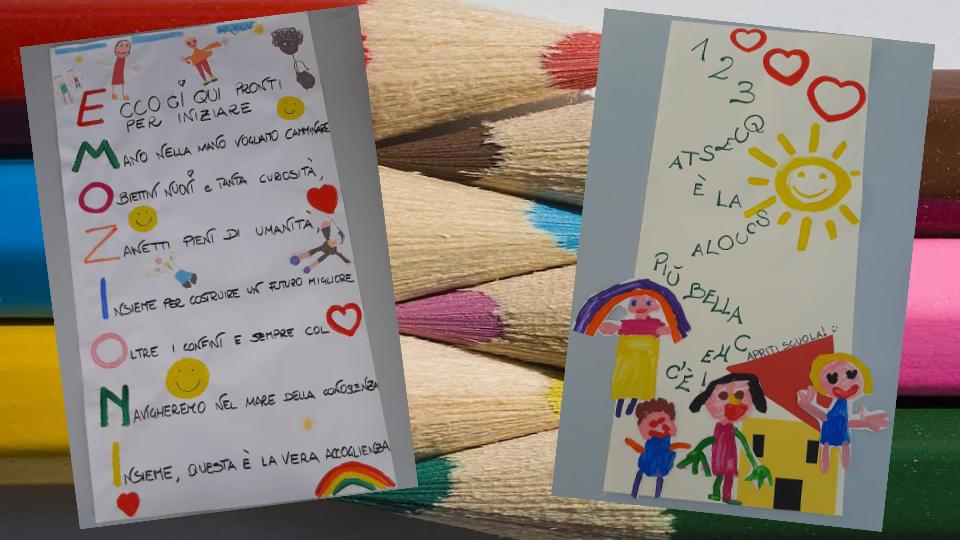 ECCOCI QUI PRONTI
PER INIZIARE
MANO NELLA MANO VOGLIAMO CAMMINARE
OBIETTIVI NUOVI e TANTA CURIOSITÀ,
ZANETTI PIENI DI UMANITÀ,
INSIEME PER COSTRUIRE UN FUTURO MIGLIORE
OLTRE I CONFINI E SEMPRE COL
NAVIGHEREMO NEL MARE DELLA CONOSCENZA
INSIEME, QUESTA È LA VERA ACCOGLIENZA
1 2 3
ATSEUQ
È LA
ALOUCS
PIÙ BELLA
EHC
C'È!
APRITI SCUOLA!